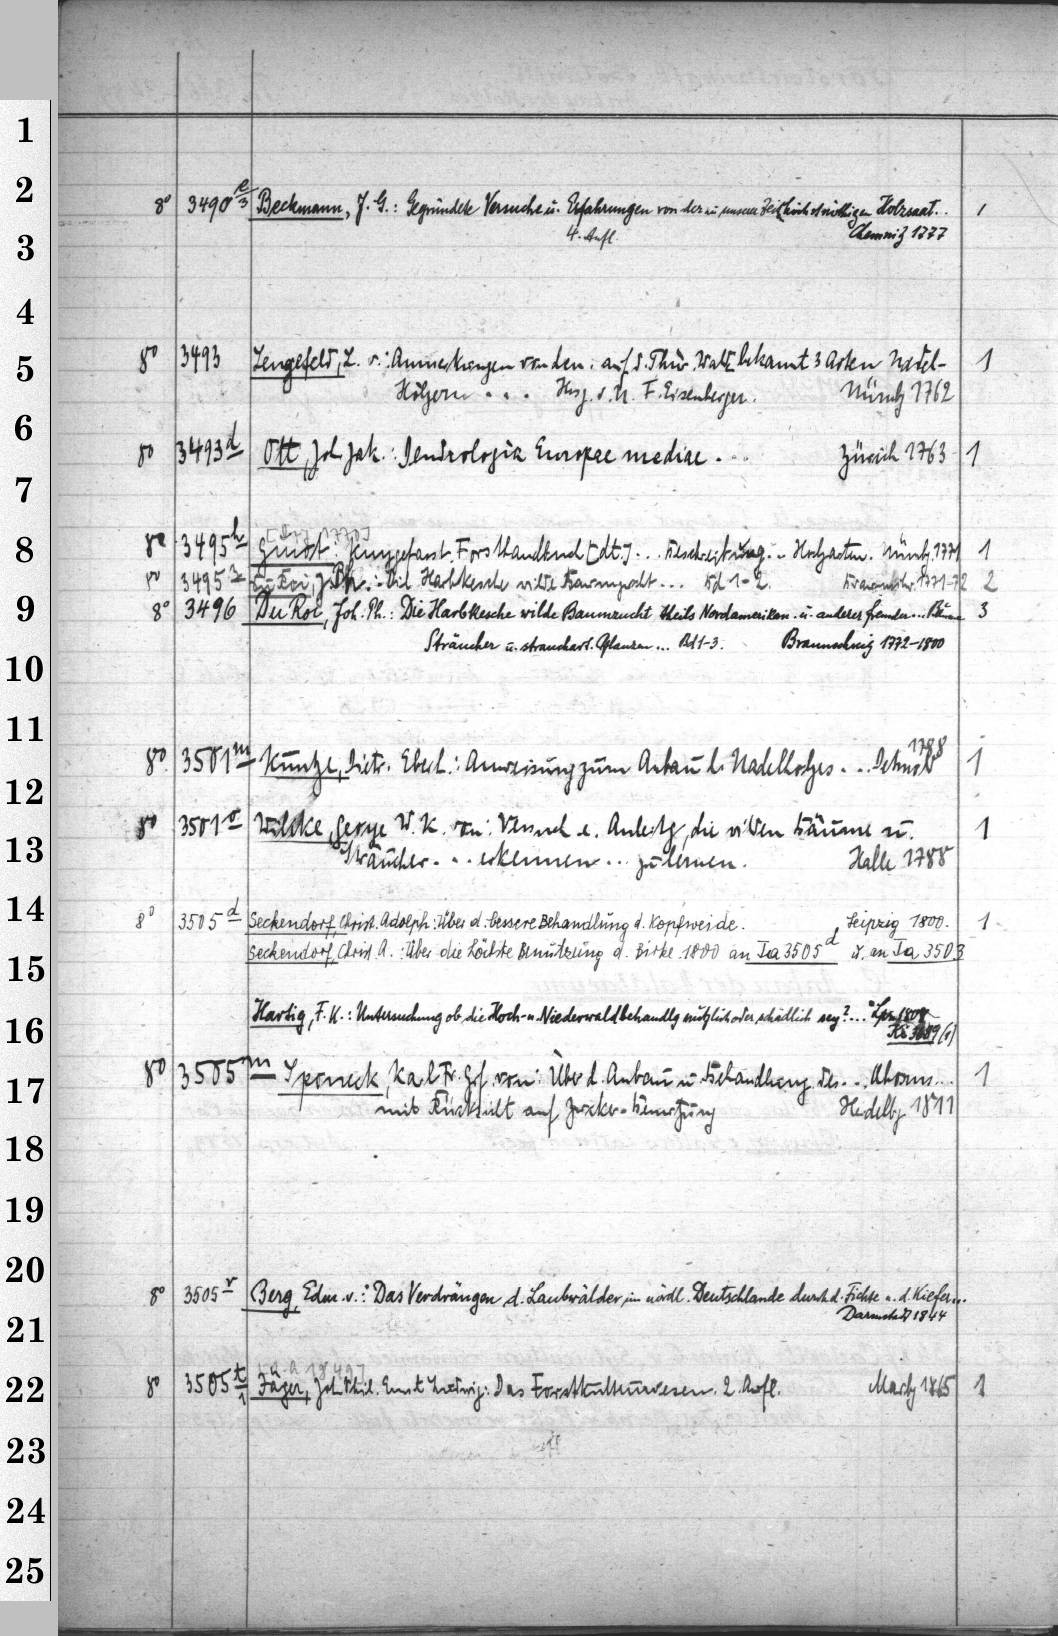 1
2
8° 3490 e/3 Beckmann, J. G.: Gegründete Versuche u. Erfahrungen von der zu unserer Zeit höchst nöthigen Holzsaat.. 1
4. Aufl. Chemnitz 1777
3
4
5
8° 3493 Lengefeld, L. v.: Anmerkungen von den auf d. Thür. Walde bekannt. 3 Arten Nadel- 1
Hölzern ... Hrsg. v. Nürnbg 1762
6
8° 3493 d Ott, Joh. Jak.: Dendrologia Europae mediae ... Zürich 1763 1
7
8
8° 3495 h ... Nürnbg. 1771 1
8° 3495 Du Roi, J. Ph.: Die Harbkesche wilde Baumzucht ... Bd 1-2. Braunschw. 1771-72 2
9
8° 3496 Du Roi, Joh. Ph.: Die Harbkesche wilde Baumzucht theils Nordamerikan. u. anderer fremder... Bäume 3
Sträucher u. strauchart. Pflanzen... Bd 1-3. Braunschweig 1772-1800
10
11
8° 3501 m Kuntze, Dietr. Eberh.: Anweisung zum Anbau d. Nadelholzes ... Detmold 1788 1
12
8° 3501 o Wilcke, George W. K. von: Versuch e. Anleitg, die wilden Bäume u. 1
13
Sträucher ... erkennen ... zu lernen. Halle 1788
14
8° 3505 d Seckendorf, Christ. Adolph: Über d. bessere Behandlung d. Kopfweide. Leipzig 1800. 1
Seckendorf, Christ. A.: Über die höchste Benutzung d. Birke 1800 an Ia 3505 d u. an Ia 3503
15
Hartig, F. K.: Untersuchung ob die Hoch- u. Niederwaldbehandlg nützlich oder schädlich sey? ... Lpz. 1808
16
8° 3505 m Sponeck, Karl Fr. Grf von: Über d. Anbau u. Behandlung des ... Ahorns ... 1
17
mit Rücksicht auf Zucker-Benutzung Heidelbg 1811
18
19
20
8° 3505 r Berg, Edm. v.: Das Verdrängen d. Laubwälder im nördl. Deutschlande durch d. Fichte u. d. Kiefer...
Darmstadt 1844
21
22
8° 3505 t/1 Jäger, Joh. Phil. Ernst Ludwig: Das Forstkulturwesen. 2. Aufl. Marbg 1865 1
23
24
25